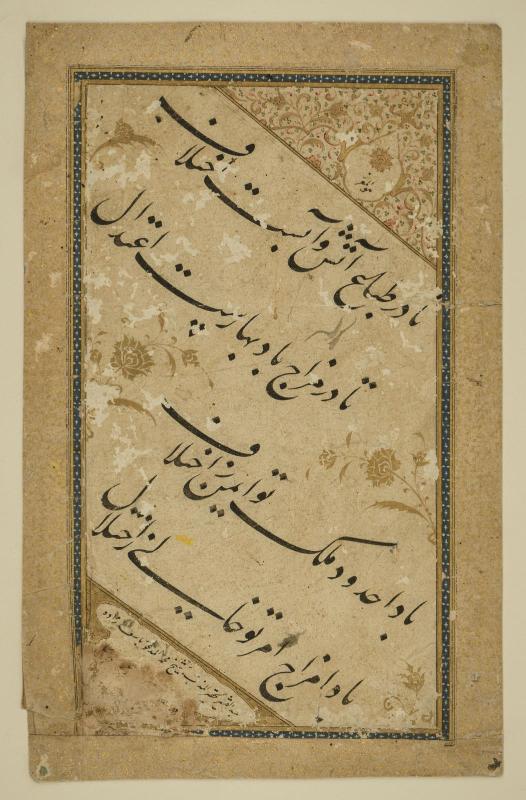 تا در طباع آتش و آبست اختلاف
تا در مزاج باد بهاریست اعتدال
بادا حدود ملک تو ایمن ز اختلاف
بادا مزاج امر تو خالی ز اختلال